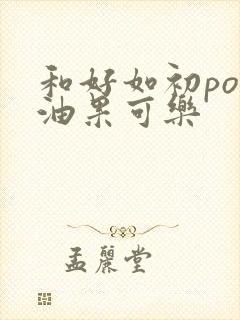 和好如初po
油果可樂
孟麗堂